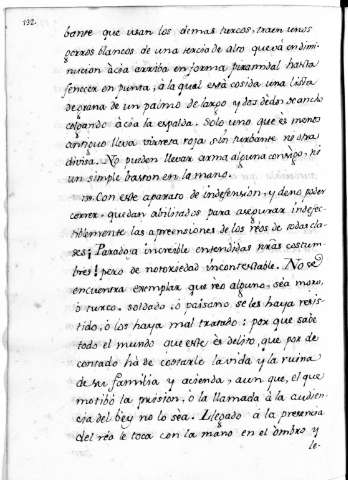 132.
bante que usan los demas turcos, traen unos
gorros blancos de una tercia de alto que vá en dimi-
nucion ácia arriba en forma piramidal hasta
fenecer en punta, á la qual está cosida una lista
de grana de un palmo de largo y dos dedos de ancho
colgando ácia la espalda. Solo uno que es menos
antiguo lleva virreta roja, sin turbante ni otra
divisa. No pueden llevar arma alguna consigo, ni
un simple baston en la mano.
Con este aparato de indefension, y de no poder
correr, quedan abilitados para asegurar indefec-
tiblemente las apreensiones de los reos de todas cla-
ses; Paradoja increible entendidas nras costum-
bres! pero de notoriedad incontextable. No se
encuentra exemplar que reo alguno, sea moro,
ó turco, soldado, ó paisano se les haya resis-
tido, ó los haya mal tratado: por que sabe
todo el mundo que este es delito, que por de
contado há de costarle la vida y la ruina
de su familia y acienda, aun que, el que
motibó la prision, ó la llamada á la audien-
cia del bey no lo séa. Llegado á la presencia
del reo le toca con la mano en el ombro y
le-